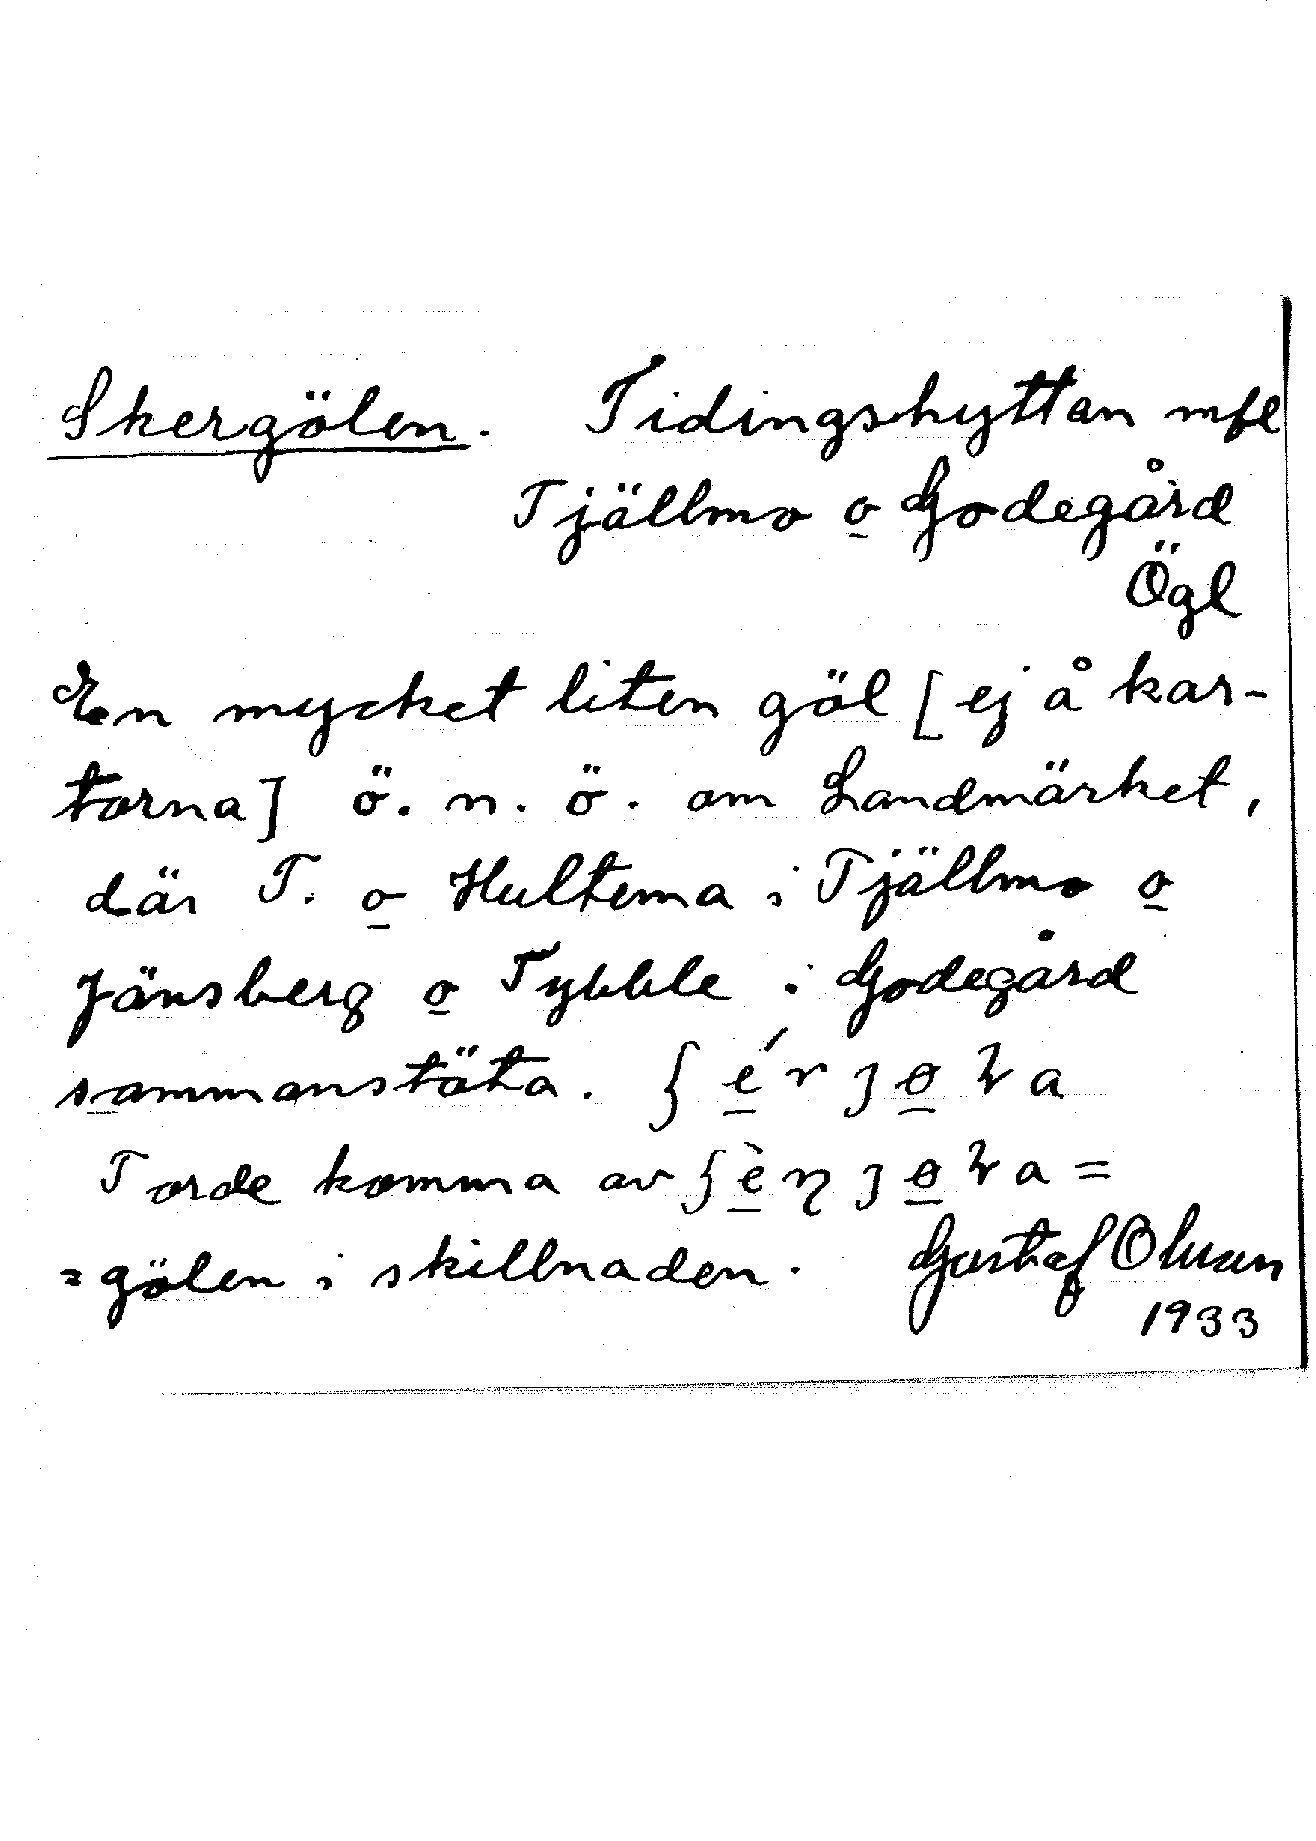 Skergölen. Tidingshyttan mfl
Tjällmo o Godegård
Ögl
En mycket liten göl [ej å kar-
torna] ö. n. ö. om Landmärket,
där T. o Hultema i Tjällmo o
Jänsberg o Tybble i Godegård
sammanstöta.
Torde komma av
=gölen i skillnaden. Gustaf Olsson
1933